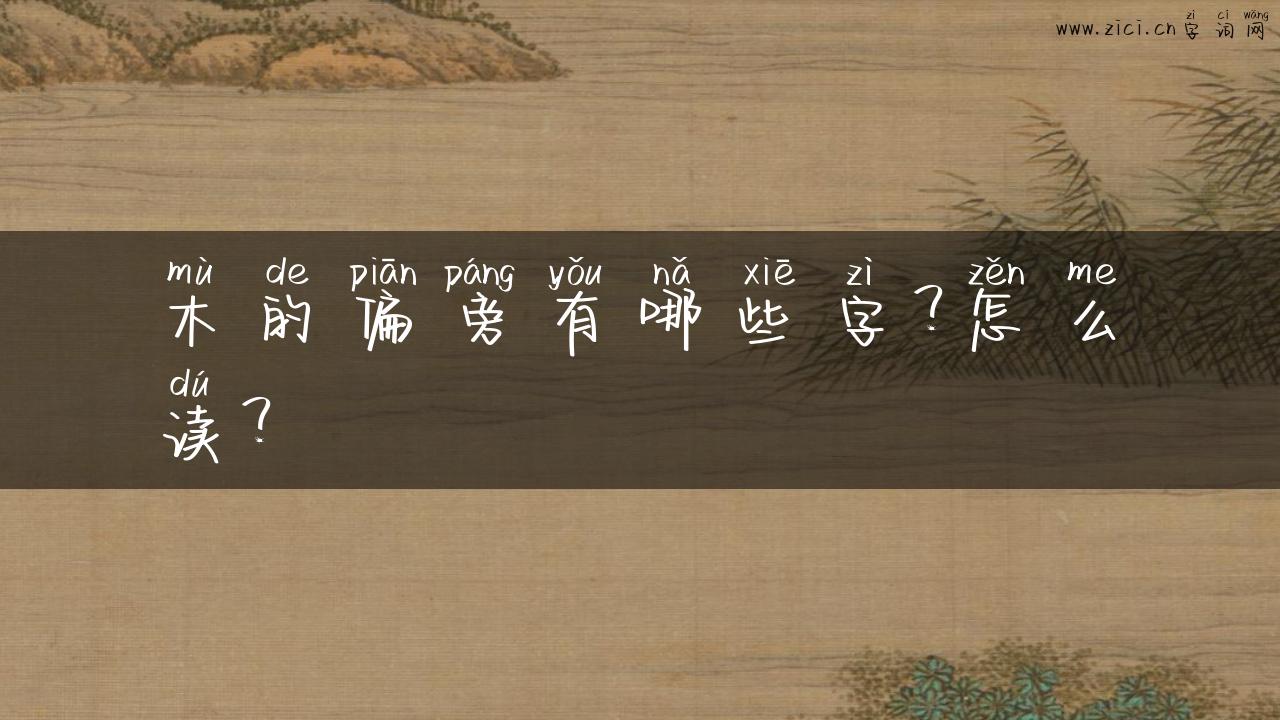 zì cí wǎng
www.zici.cn字词网
mù de piān páng yǒu nǎ xiē zì zěn me
木的偏旁有哪些字？怎么
dú
读？